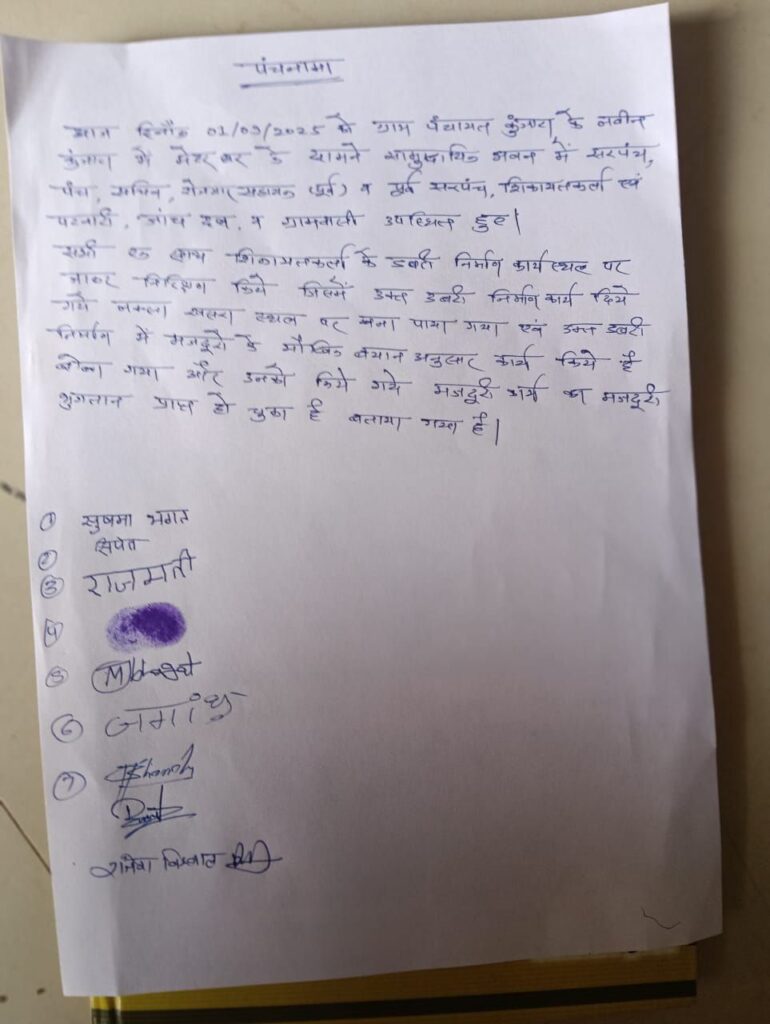 पंचनामा
आज दिनाँक 01/09/2025 को ग्राम पंचायत कुंजारा के नवीन
कुंजारा में मेटर घर के सामने सामुदायिक भवन में सरपंच,
पंच, सचिव, रोजगार सहायक (पूर्व) व पूर्व सरपंच, शिकायतकर्ता एवं
पटवारी, जांच दल, व ग्रामवासी उपस्थित हुए।
सभी एक साथ शिकायतकर्ता के डबरी निर्माण कार्य स्थल पर
जाकर निरिक्षण किये जिसमें उक्त डबरी निर्माण कार्य दिये
गये नक्शा खसरा स्थल पर बना पाया गया एवं उक्त डबरी
निर्माण में मजदूरो के मौखिक बयान अनुसार कार्य किये है
बोला गया और उनको किये गये मजदूरी कार्य का मजदूरी
भुगतान प्राप्त हो चुका है बताया गया है।
① सुषमा भगत
② सिपेत
③ राजमती
④
⑤ Mbhagat
⑥
⑦